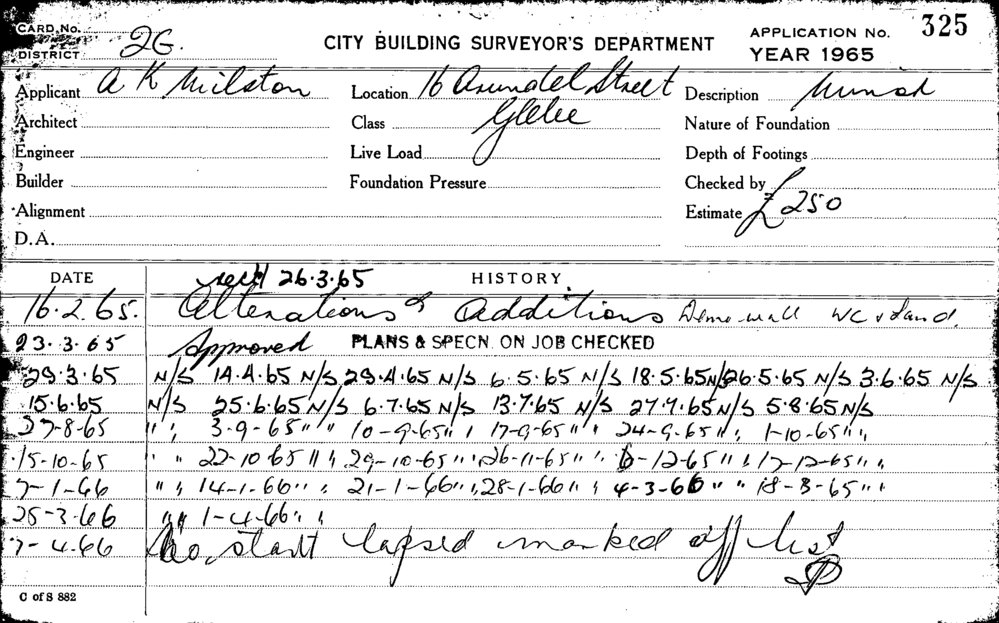 CARD No. 2G. CITY BUILDING SURVEYOR'S DEPARTMENT APPLICATION No. 325
DISTRICT YEAR 1965
Applicant A K Milston Location 16 Arundel Street Description
Architect Class Glebe Nature of Foundation
Engineer Live Load Depth of Footings
Builder Foundation Pressure Checked by
Alignment Estimate £250
D.A.
DATE rec'd 26.3.65 HISTORY
16.2.65. Alterations & additions wall WC &
23.3.65 Approved PLANS & SPECN. ON JOB CHECKED
29.3.65 N/S 14.4.65 N/S 29.4.65 N/S 6.5.65 N/S 18.5.65 N/S 26.5.65 N/S 3.6.65 N/S
15.6.65 N/S 25.6.65 N/S 6.7.65 N/S 13.7.65 N/S 27.7.65 N/S 5.8.65 N/S
27-8-65 " " 3-9-65 " " 10-9-65 " " 17-9-65 " " 24-9-65 " " 1-10-65 " "
15-10-65 " " 22-10-65 " " 29-10-65 " " 26-11-65 " " 6-12-65 " " 17-12-65 " "
7-1-66 " " 14-1-66 " " 21-1-66 " " 28-1-66 " " 4-3-66 " " 18-3-65 " "
25-3-66 " " 1-4-66 " "
7-4-66 No start lapsed marked off list
C of S 882